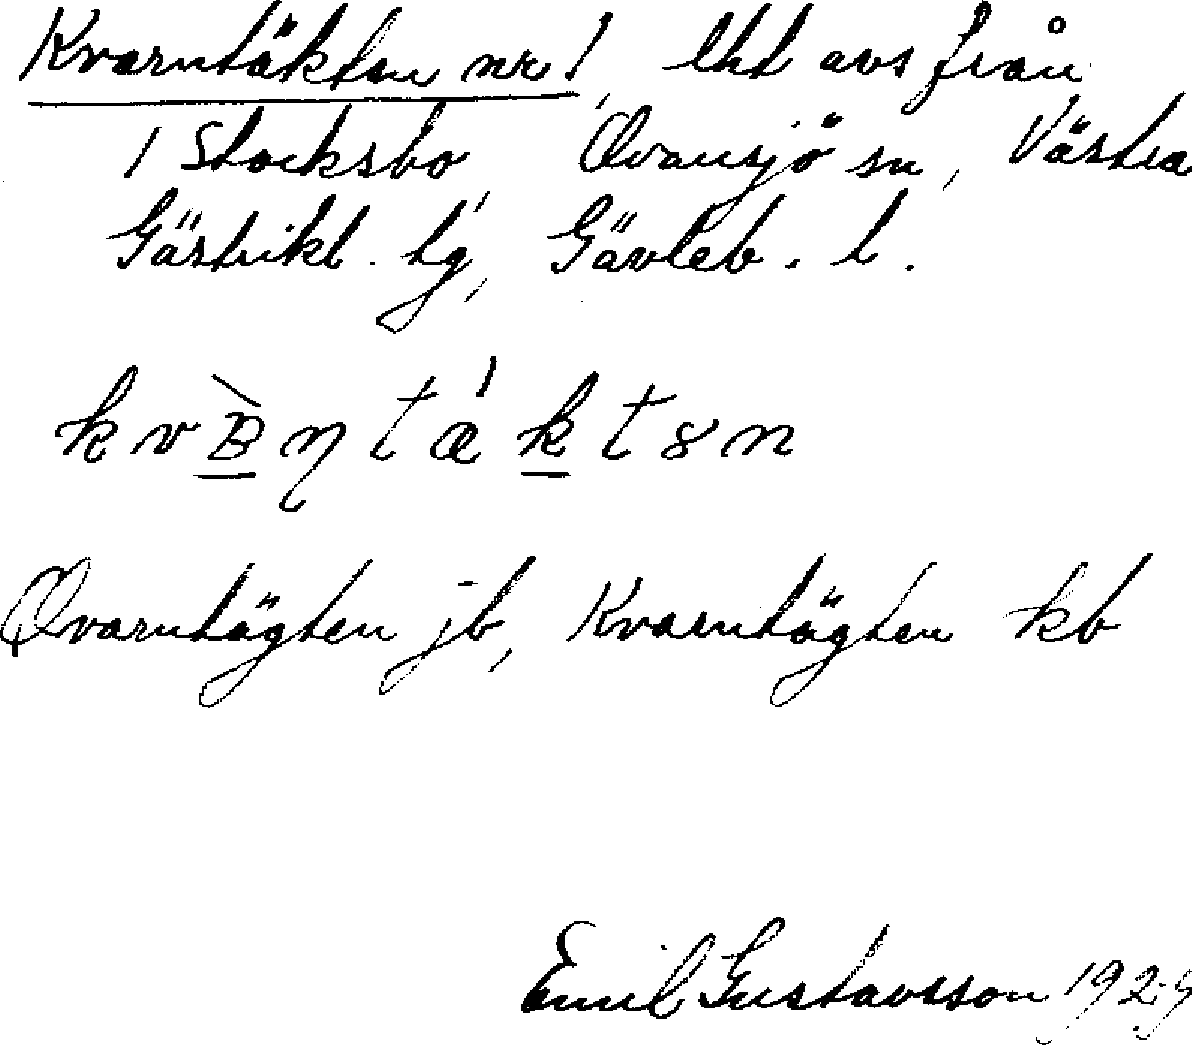 Kvarntäkten nr 1, lht avs från
1 Stocksbo, Ovansjö sn, Västra
Gästrikl. tg, Gävleb. l.
Qvarntägten jb, Kvarntägten kb
Emil Gustavsson 1929